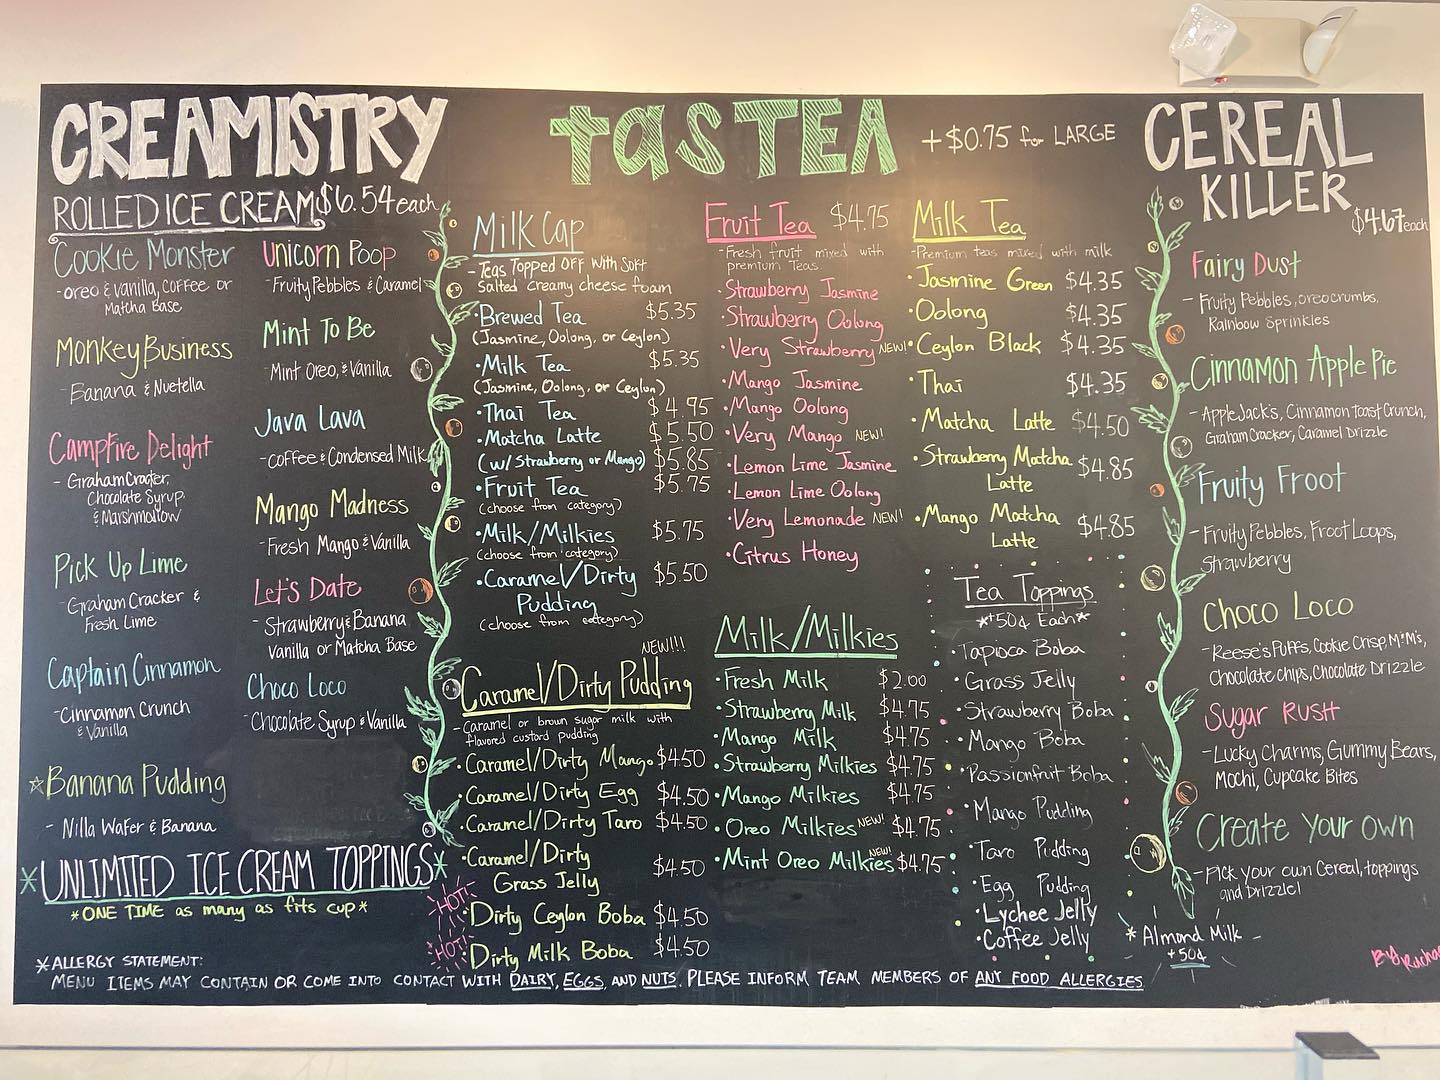 CREAMISTRY
ROLLED ICE CREAM $6.54 each
Cookie Monster
-Oreo & Vanilla, Coffee or
Matcha Base
Monkey Business
-Banana & Nuetella
Campfire Delight
- Graham Cracter,
Chocolate Syrup,
& Marshmallow
Pick Up Lime
-Graham Cracker &
Fresh Lime
Captain Cinnamon
-Cinnamon Crunch
& Vanilla
☆Banana Pudding
- Nilla Wafer & Banana
Unicorn Poop
-Fruity Pebbles & Caramel
Mint To Be
-Mint Oreo, & Vanilla
Java Lava
-Coffee & Condensed Milk
Mango Madness
-Fresh Mango & Vanilla
Let's Date
- Strawberry & Banana
Vanilla or Matcha Base
Choco Loco
-Chocolate Syrup & Vanilla
*UNLIMITED ICE CREAM TOPPINGS*
*ONE TIME as many as fits cup*
tasTEA
+$0.75 for LARGE
Milk Cap
-Teas Topped OFF With Soft
Salted creamy cheese foam
•Brewed Tea $5.35
(Jasmine, Oolong, or Ceylon)
•Milk Tea $5.35
(Jasmine, Oolong, or Ceylon)
•Thai Tea $4.95
•Matcha Latte $5.50
(w/ Strawberry or Mango) $5.85
•Fruit Tea $5.75
(choose from category)
•Milk/Milkies $5.75
(choose from category)
•Caramel/Dirty $5.50
Pudding
(choose from category)
NEW!!!
Caramel/Dirty Pudding
-Caramel or brown sugar milk with
flavored custard pudding
•Caramel/Dirty Mango $4.50
•Caramel/Dirty Egg $4.50
•Caramel/Dirty Taro $4.50
•Caramel/Dirty
Grass Jelly $4.50
HOT! •Dirty Ceylon Boba $4.50
HOT! •Dirty Milk Boba $4.50
Fruit Tea $4.75
-Fresh fruit mixed with
premium Teas
•Strawberry Jasmine
•Strawberry Oolong
•Very Strawberry NEW!
•Mango Jasmine
•Mango Oolong
•Very Mango NEW!
•Lemon Lime Jasmine
•Lemon Lime Oolong
•Very Lemonade NEW!
•Citrus Honey
Milk/Milkies
•Fresh Milk $2.00
•Strawberry Milk $4.75
•Mango Milk $4.75
•Strawberry Milkies $4.75
•Mango Milkies $4.75
•Oreo Milkies NEW! $4.75
•Mint Oreo Milkies NEW! $4.75
Milk Tea
-Premium teas mixed with milk
•Jasmine Green $4.35
•Oolong $4.35
•Ceylon Black $4.35
•Thai $4.35
•Matcha Latte $4.50
•Strawberry Matcha
Latte $4.85
•Mango Matcha
Latte $4.85
Tea Toppings
*+50¢ Each*
•Tapioca Boba
•Grass Jelly
•Strawberry Boba
•Mango Boba
•Passionfruit Boba
•Mango Pudding
•Taro Pudding
•Egg Pudding
•Lychee Jelly
•Coffee Jelly
CEREAL
KILLER
$4.67 each
Fairy Dust
- Fruity Pebbles, oreo crumbs,
Rainbow Sprinkles
Cinnamon Apple Pie
-Apple Jack's, Cinnamon Toast Crunch,
Graham Cracker, Caramel Drizzle
Fruity Froot
-Fruity Pebbles, Froot Loops,
Strawberry
Choco Loco
-Reese's Puffs, Cookie Crisp, M&M's,
Chocolate chips, Chocolate Drizzle
Sugar Rush
-Lucky Charms, Gummy Bears,
Mochi, Cupcake Bites
Create Your Own
-Pick your own Cereal, toppings
and Drizzle!
* Almond Milk -
+50¢
*ALLERGY STATEMENT:
MENU ITEMS MAY CONTAIN OR COME INTO CONTACT WITH DAIRY, EGGS, AND NUTS. PLEASE INFORM TEAM MEMBERS OF ANY FOOD ALLERGIES
By